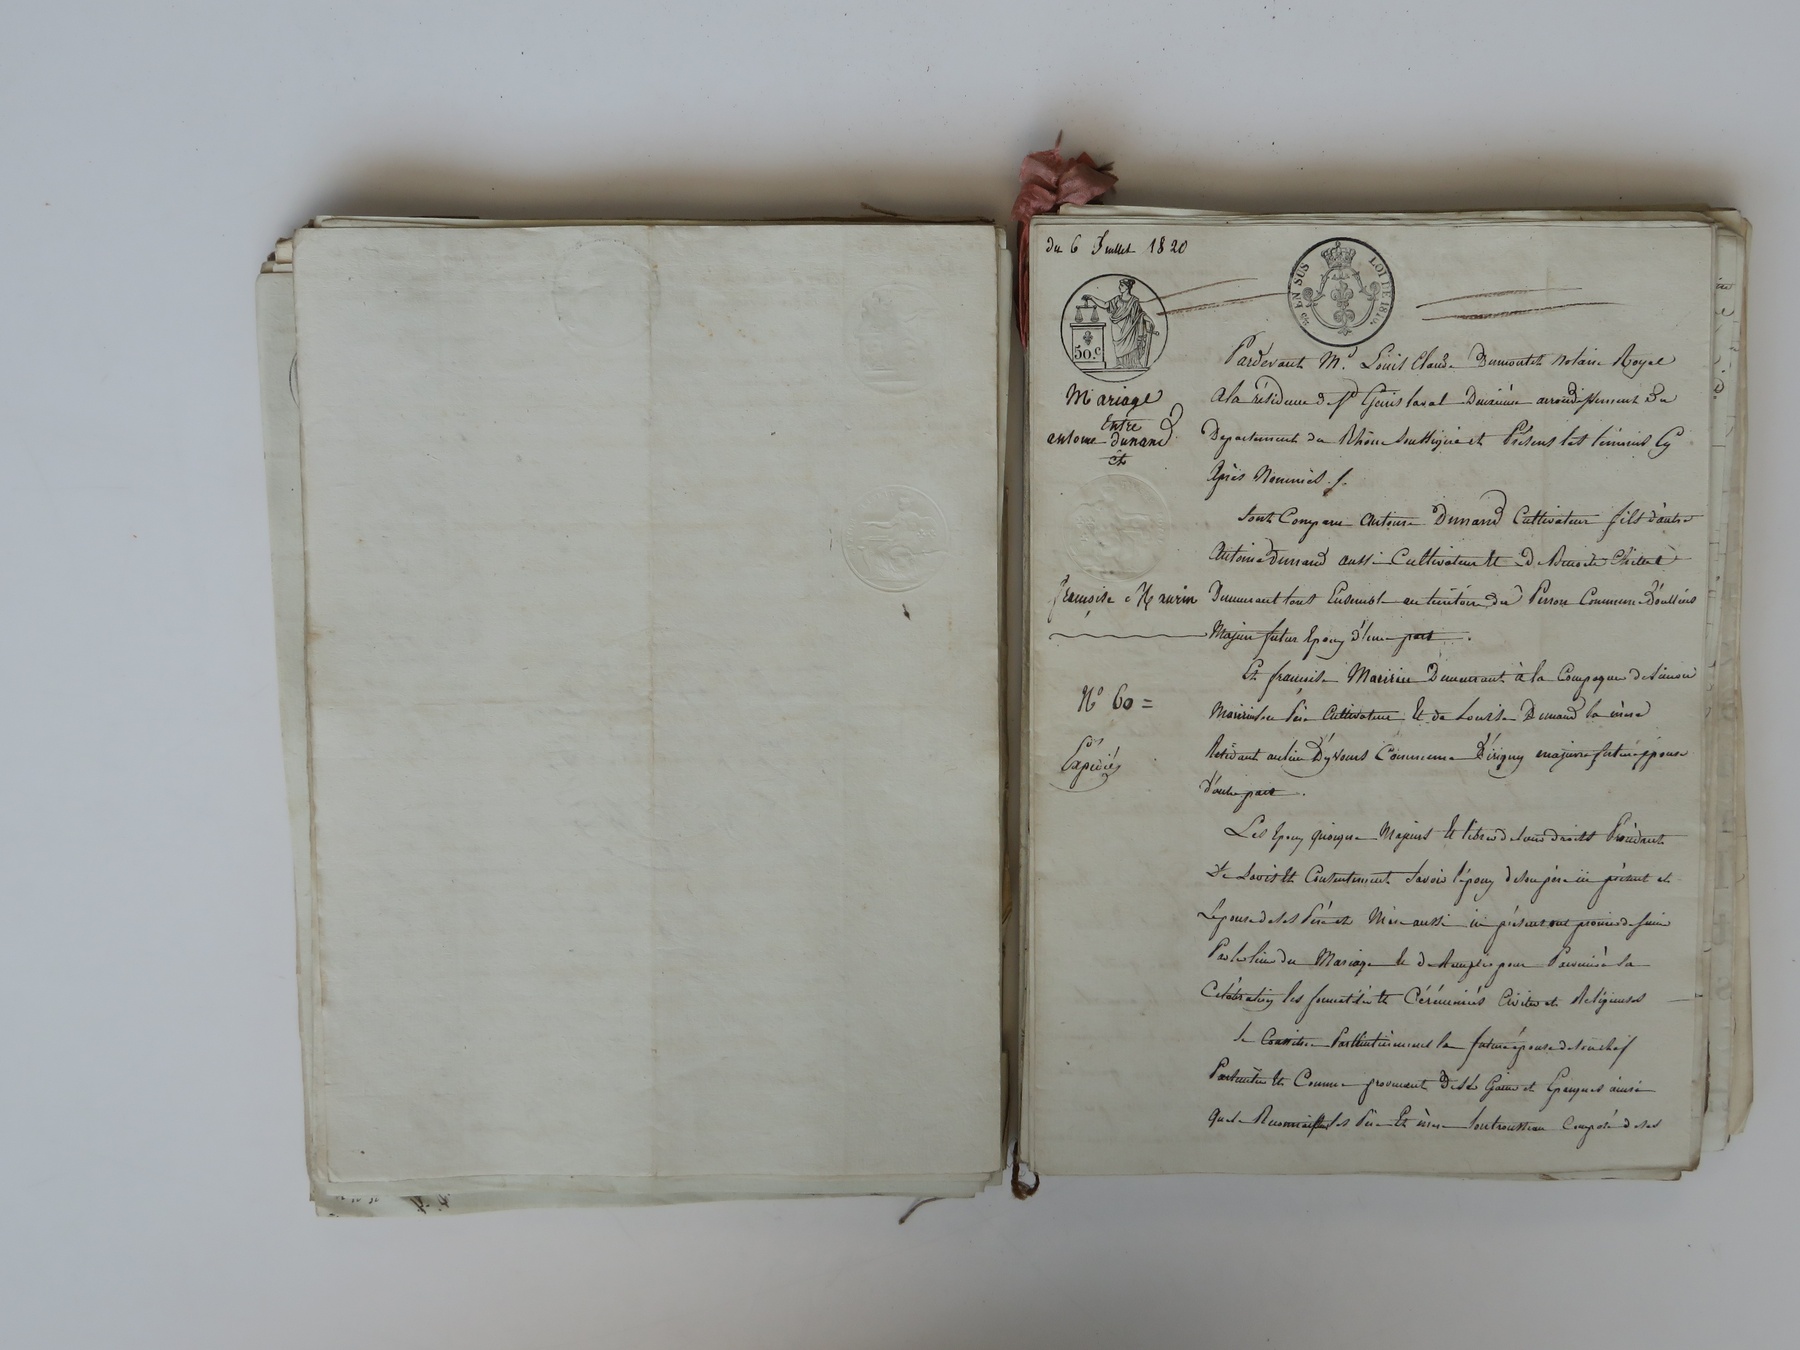 du 6 Juillet 1820
EN SUS LOI DE 1816
50.c
Mariage
Entre
antoine dunand
et
françoise Maurin
N° 60 =
Expédiée
Pardevant Me. Louis Claude Dumontet notaire Royal
a la résidence de St Genis laval Deuxième arrondissement du
Departement du Rhône soussigné et Présens les témoins Cy
Après Nommés
sont Comparu Antoine Dunand Cultivateur fils d'autre
Antoine Dunand aussi Cultivateur et de Benoite
Demeurant tous Ensemble au territoire du Perron Commune d'oullins
Majeur futur Epoux d'une part.
Et françoise Demeurant à la Compagnie de
père Cultivateur et de Louise Dunand sa mère
Résidant au lieu D'yvours Commune D'irigny majeure future épouse
d'autre part.
Les Epoux quoique Majeurs et libres de leurs droits Procédant
De Lavis et Consentement savoir l'époux de son père ici présent et
Lepouse de ses Père et Mère aussi ici présens ont promis de s'unir
Par le lien du Mariage et de Remplir pour Parvenir à sa
Célébration les formalités et Cérémonies Civiles et Religieuses
Se la future épouse de son chef
Particulier et Comme provenant De ses Gains et Epargnes ainsi
que le Reconnaissent ses Père et mère son trousseau Composé de ses